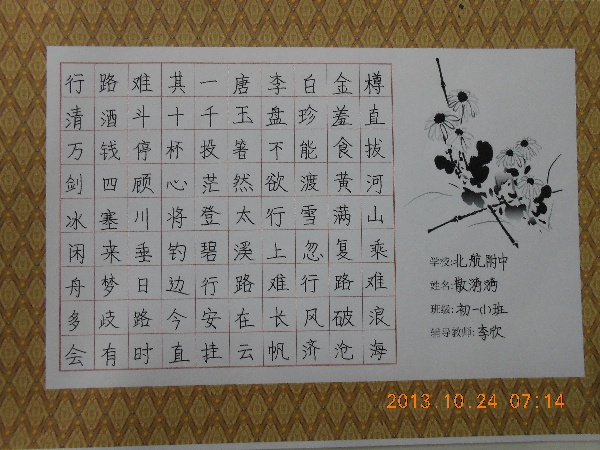 行路难其一唐李白金樽
清酒斗十千玉盘珍羞直
万钱停杯投箸不能食拔
剑四顾心茫然欲渡黄河
冰塞川将登太行雪满山
闲来垂钓碧溪上忽复乘
舟梦日边行路难行路难
多歧路今安在长风破浪
会有时直挂云帆济沧海
学校:北航附中
姓名:散漪漪
班级:初一小班
辅导教师:李欣
2013.10.24 07:14